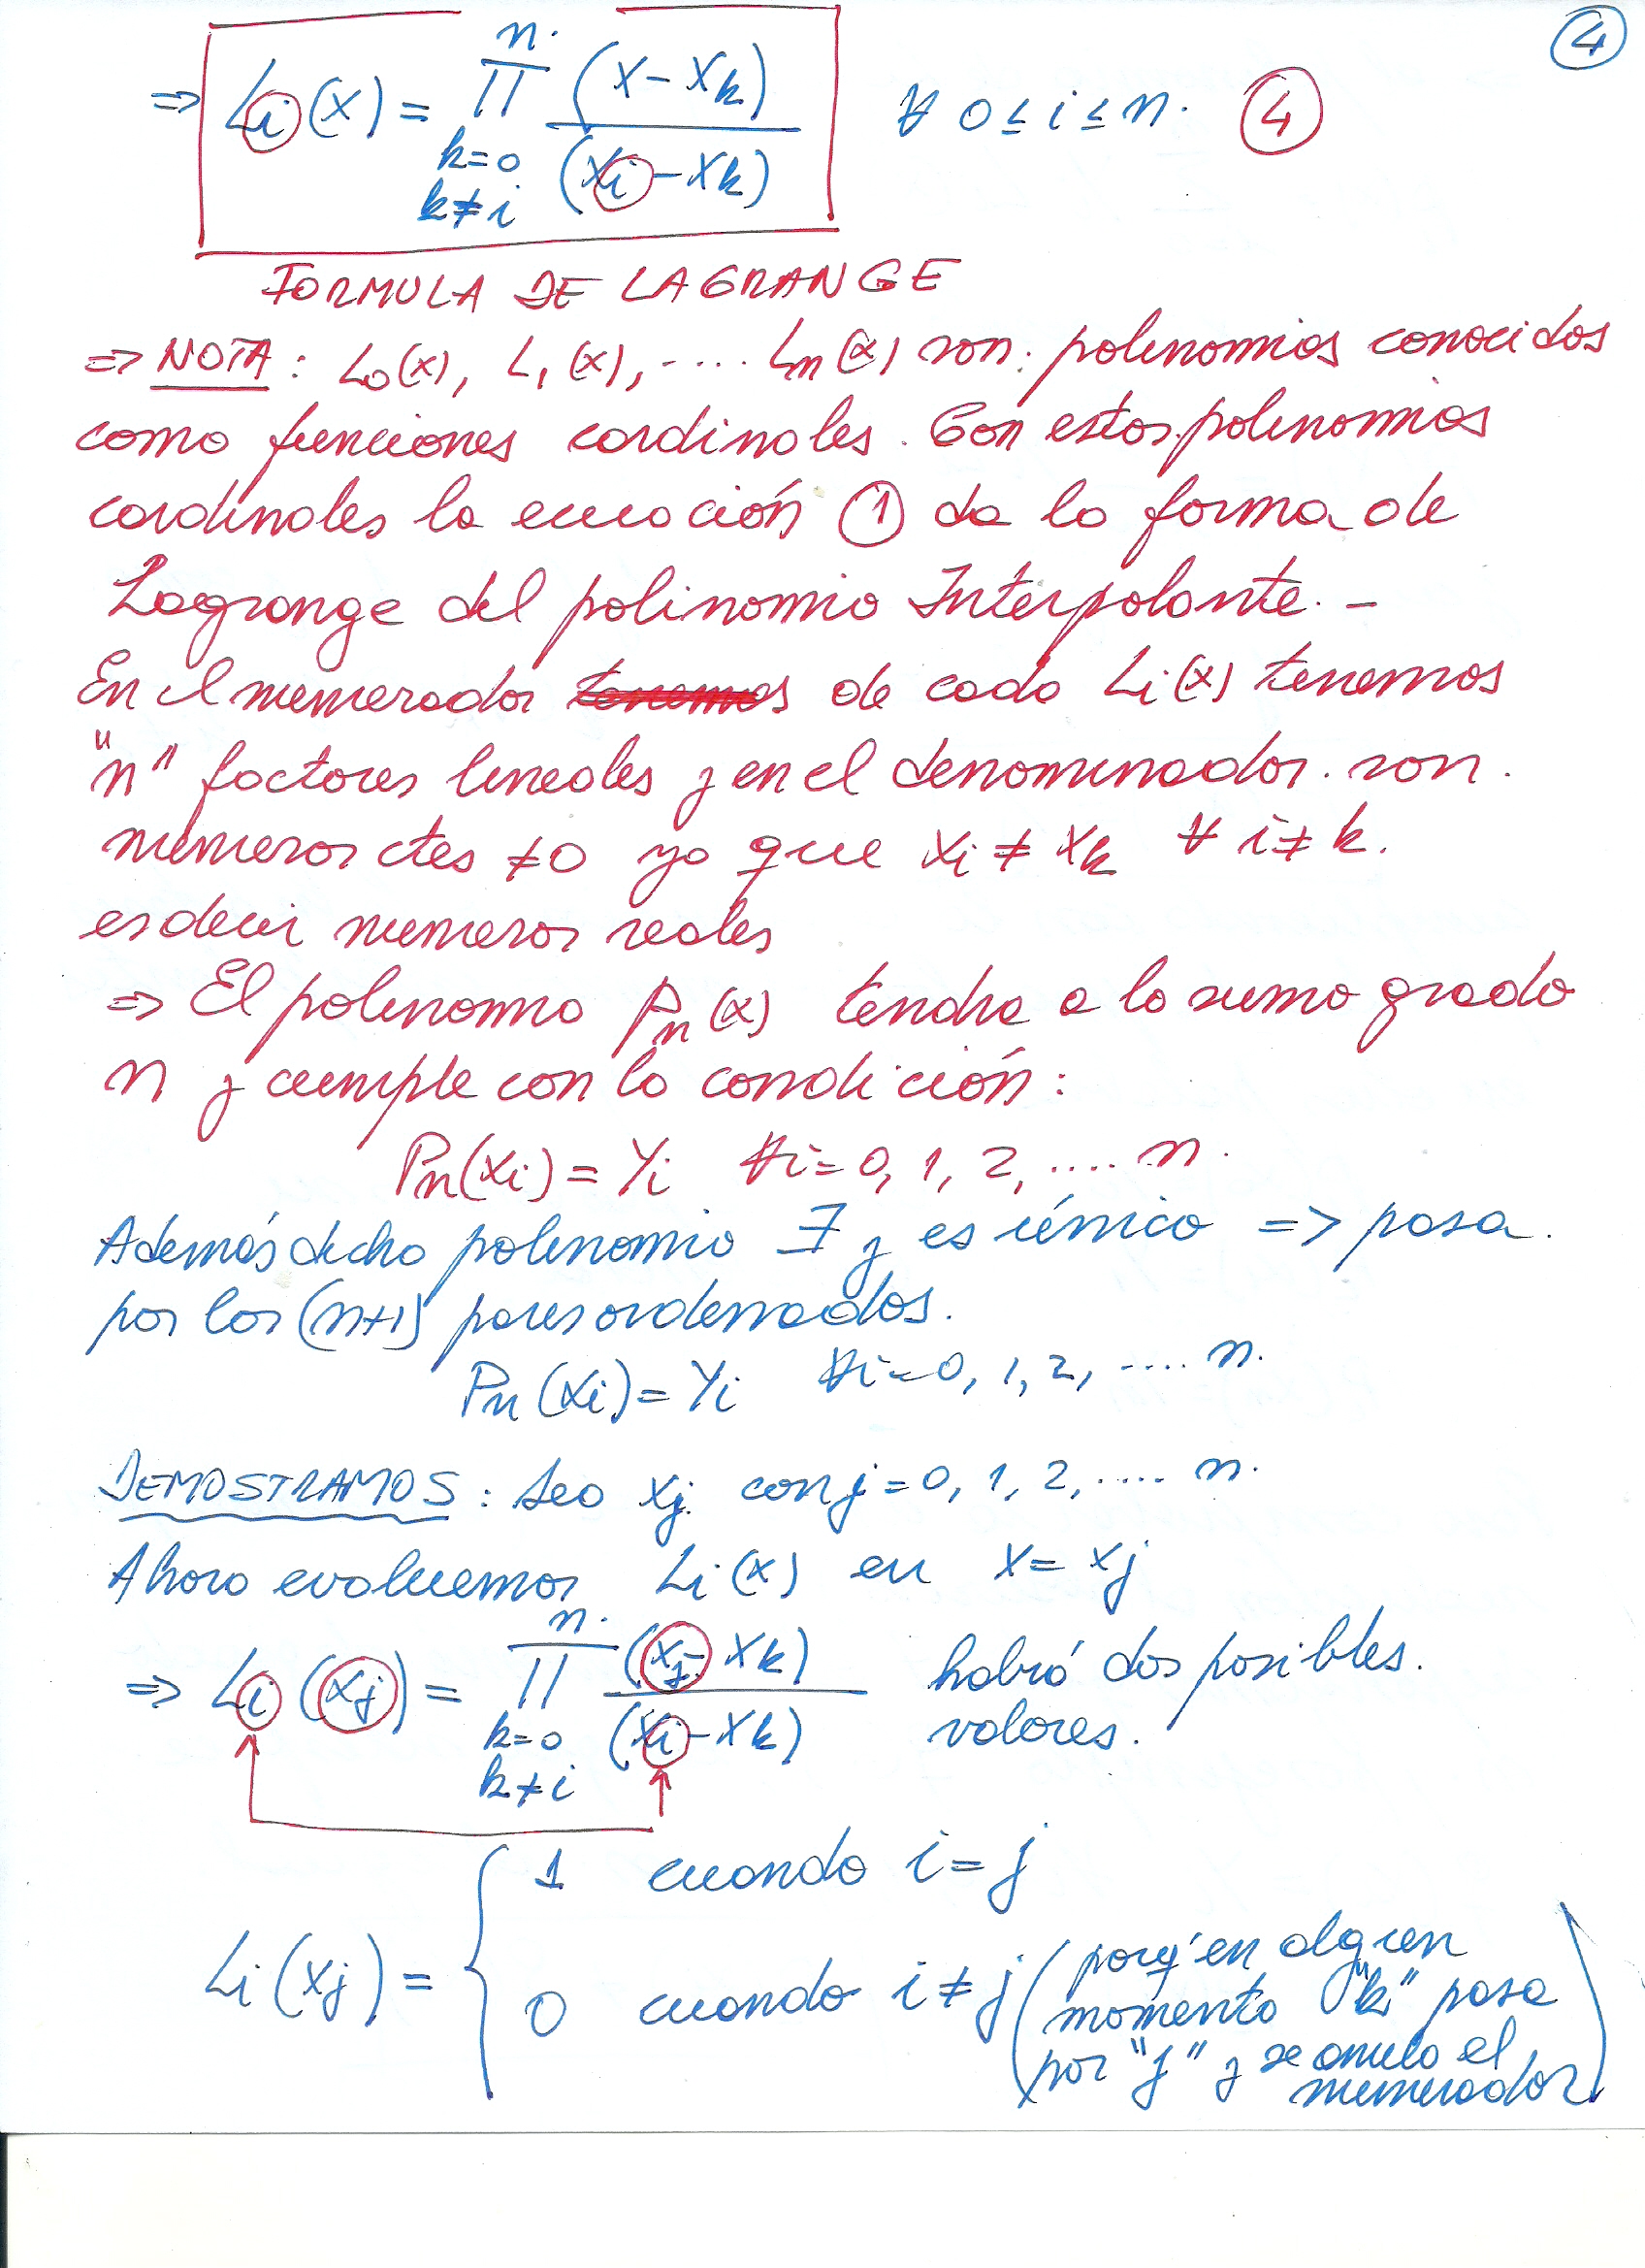 ④
⇒ Li(x) = n ∏ k=0 k≠i (x - xk) / (xi - xk) ∀ 0 ≤ i ≤ n. ④
FORMULA DE LAGRANGE
⇒ NOTA: L0(x), L1(x), .... Ln(x) son. polinomios conocidos
como funciones cardinales. Con estos polinomios
cardinales la ecuación ① da la forma de
Lagrange del polinomio Interpolante. -
En el numerador tenemos de cada Li(x) tenemos
"n" factores lineales y en el denominador. son.
numeros ctes ≠0 ya que xi ≠ xk ∀ i≠k.
es decir numeros reales
⇒ El polinomio Pn(x) tendra a lo sumo grado
n y cumple con la condición:
Pn(xi) = Yi ∀i=0, 1, 2, .... n.
Además dicho polinomio ∃ y es único => pasa.
por los (n+1) pares ordenados.
Pn(xi) = Yi ∀i=0, 1, 2, .... n.
DEMOSTRAMOS: Sea xj con j=0, 1, 2, .... n.
Ahora evaluemos Li(x) en x = xj
⇒ Li(xj) = n. ∏ k=0 k≠i (xj - xk) / (xi - xk) habrá dos posibles.
valores.
Li(xj) = { 1 cuando i = j
0 cuando i ≠ j (porq' en algun
momento "k" pasa
por "j" y se anula el
numerador)